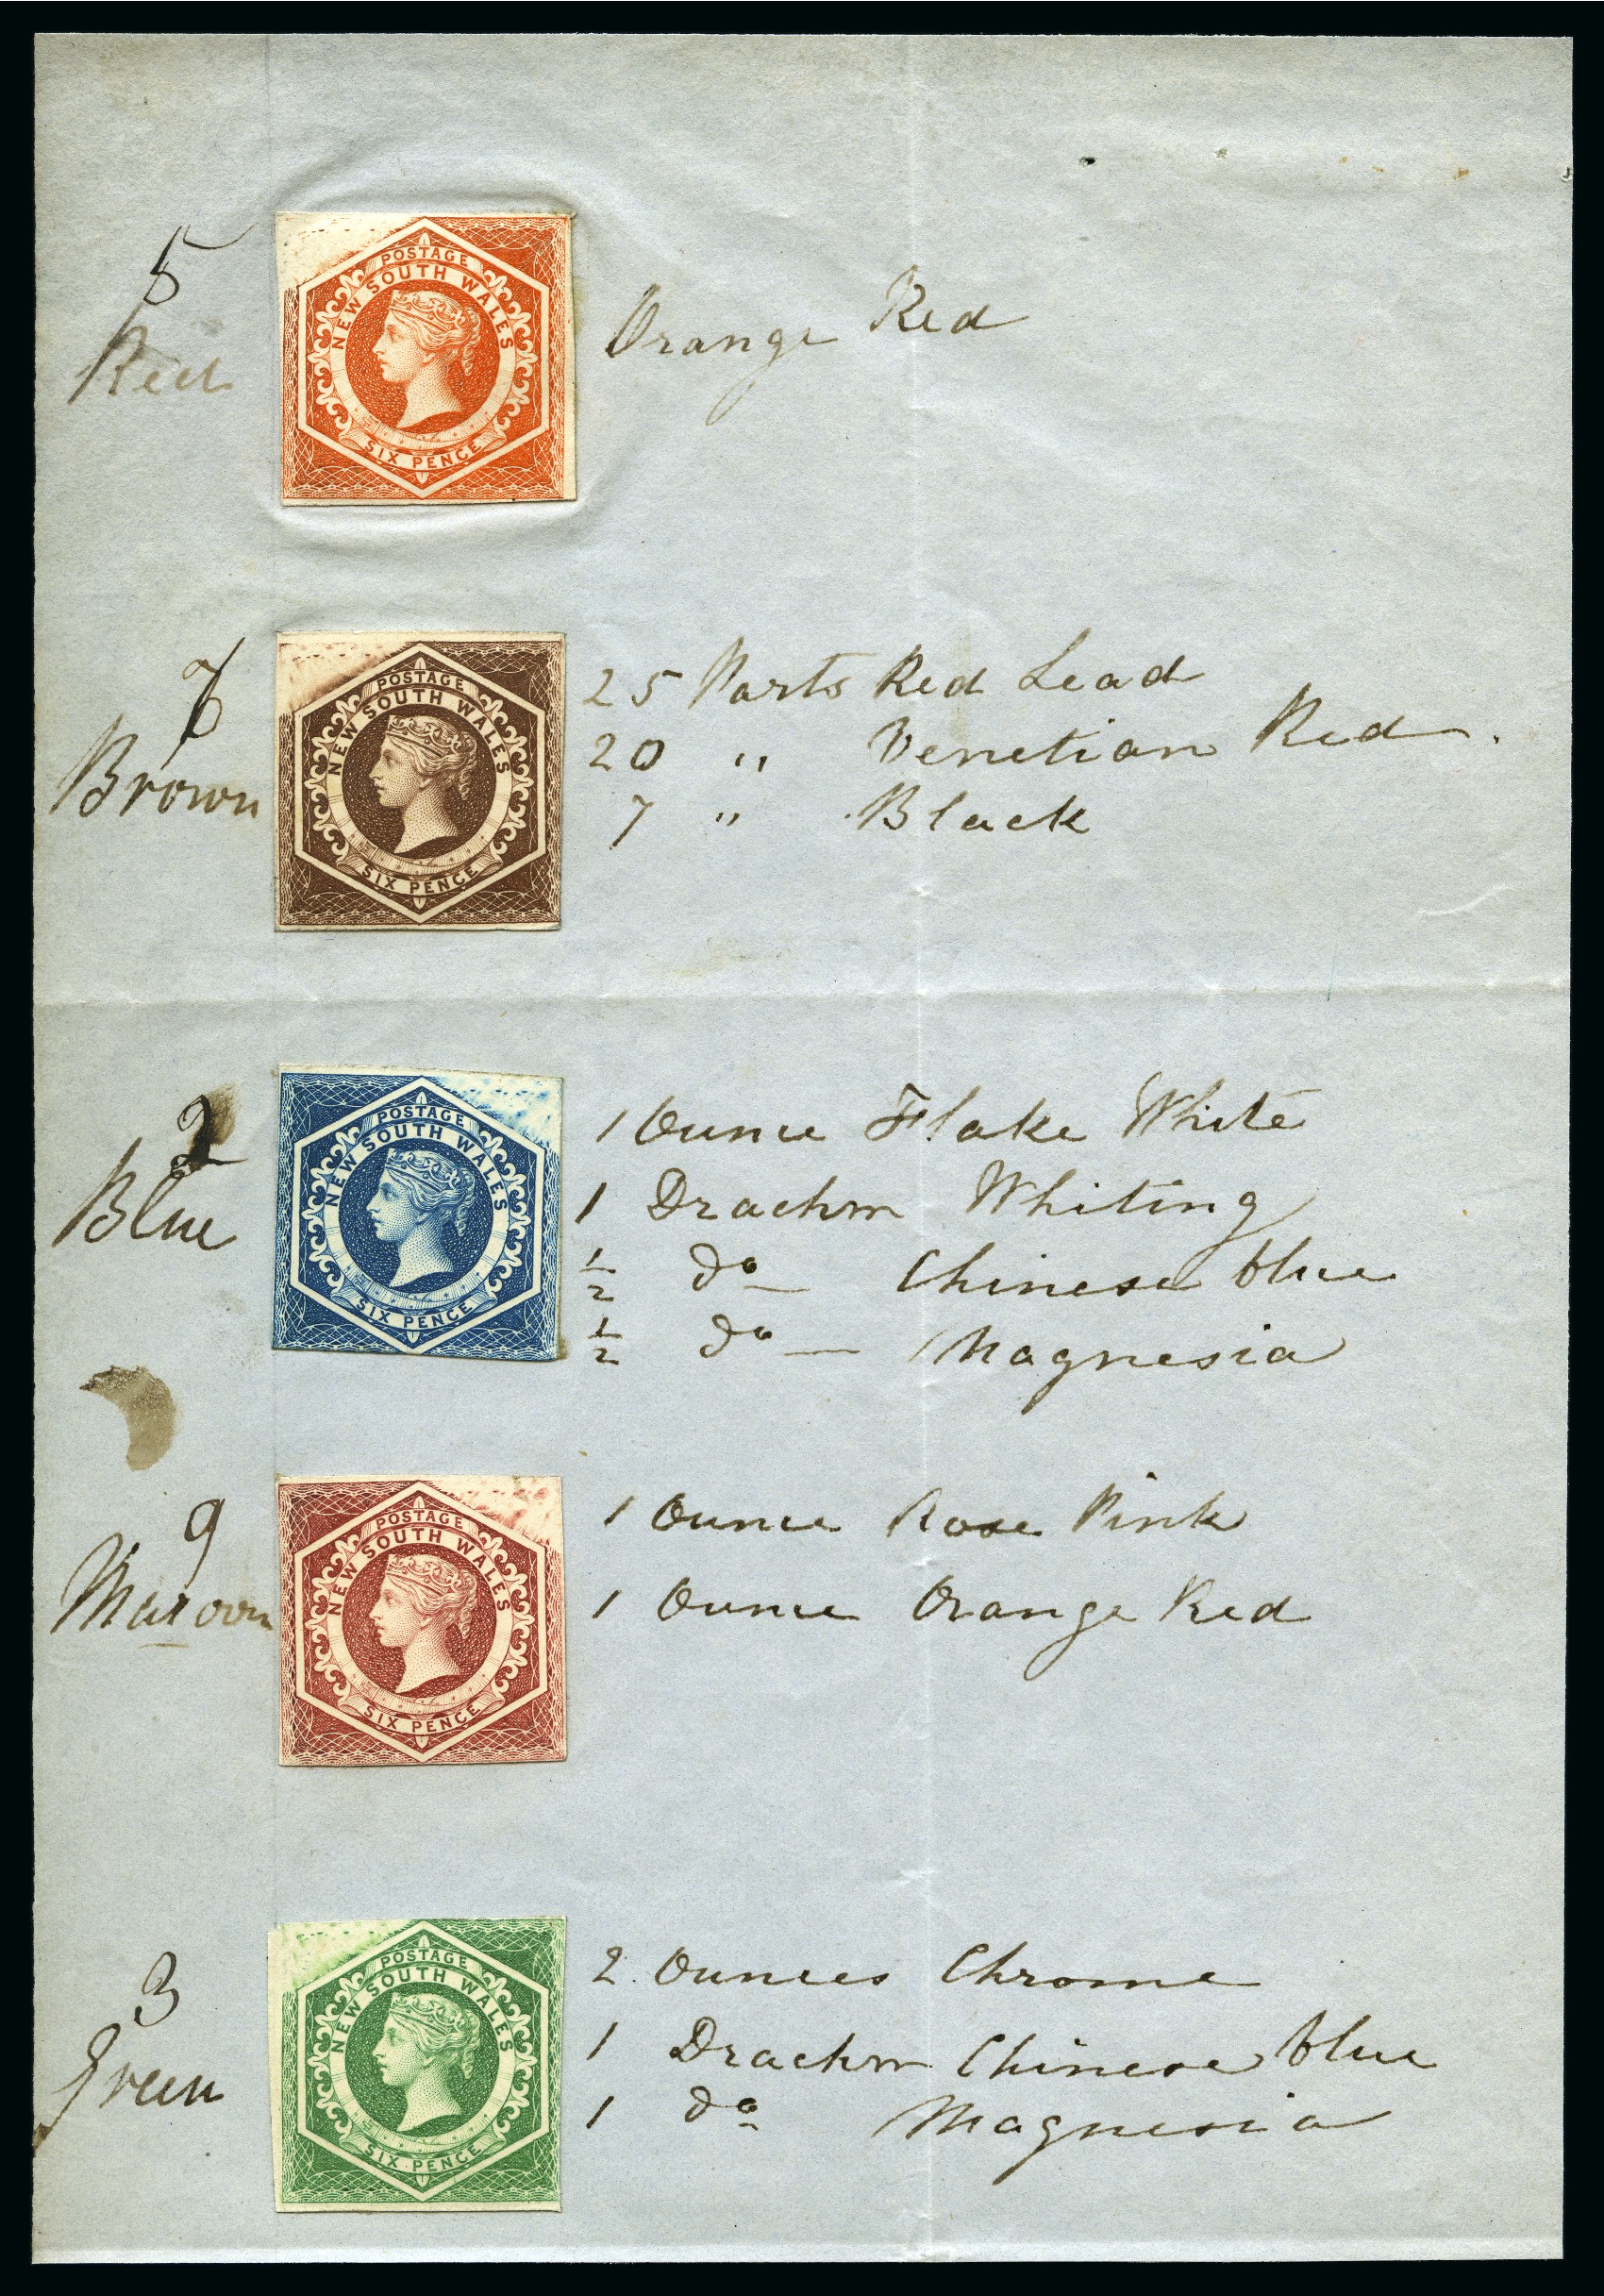 5
Red
POSTAGE
NEW SOUTH WALES
SIX PENCE
Orange Red
7
Brown
POSTAGE
NEW SOUTH WALES
SIX PENCE
25 Parts Red Lead
20 " Venetian Red.
7 " Black
2
Blue
POSTAGE
NEW SOUTH WALES
SIX PENCE
1 Ounce Flake White
1 Drachm Whiting
½ do — Chinese blue
½ do — Magnesia
9
Maroon
POSTAGE
NEW SOUTH WALES
SIX PENCE
1 Ounce Rose Pink
1 Ounce Orange Red
3
Green
POSTAGE
NEW SOUTH WALES
SIX PENCE
2 Ounces Chrome
1 Drachm Chinese blue
1 do Magnesia